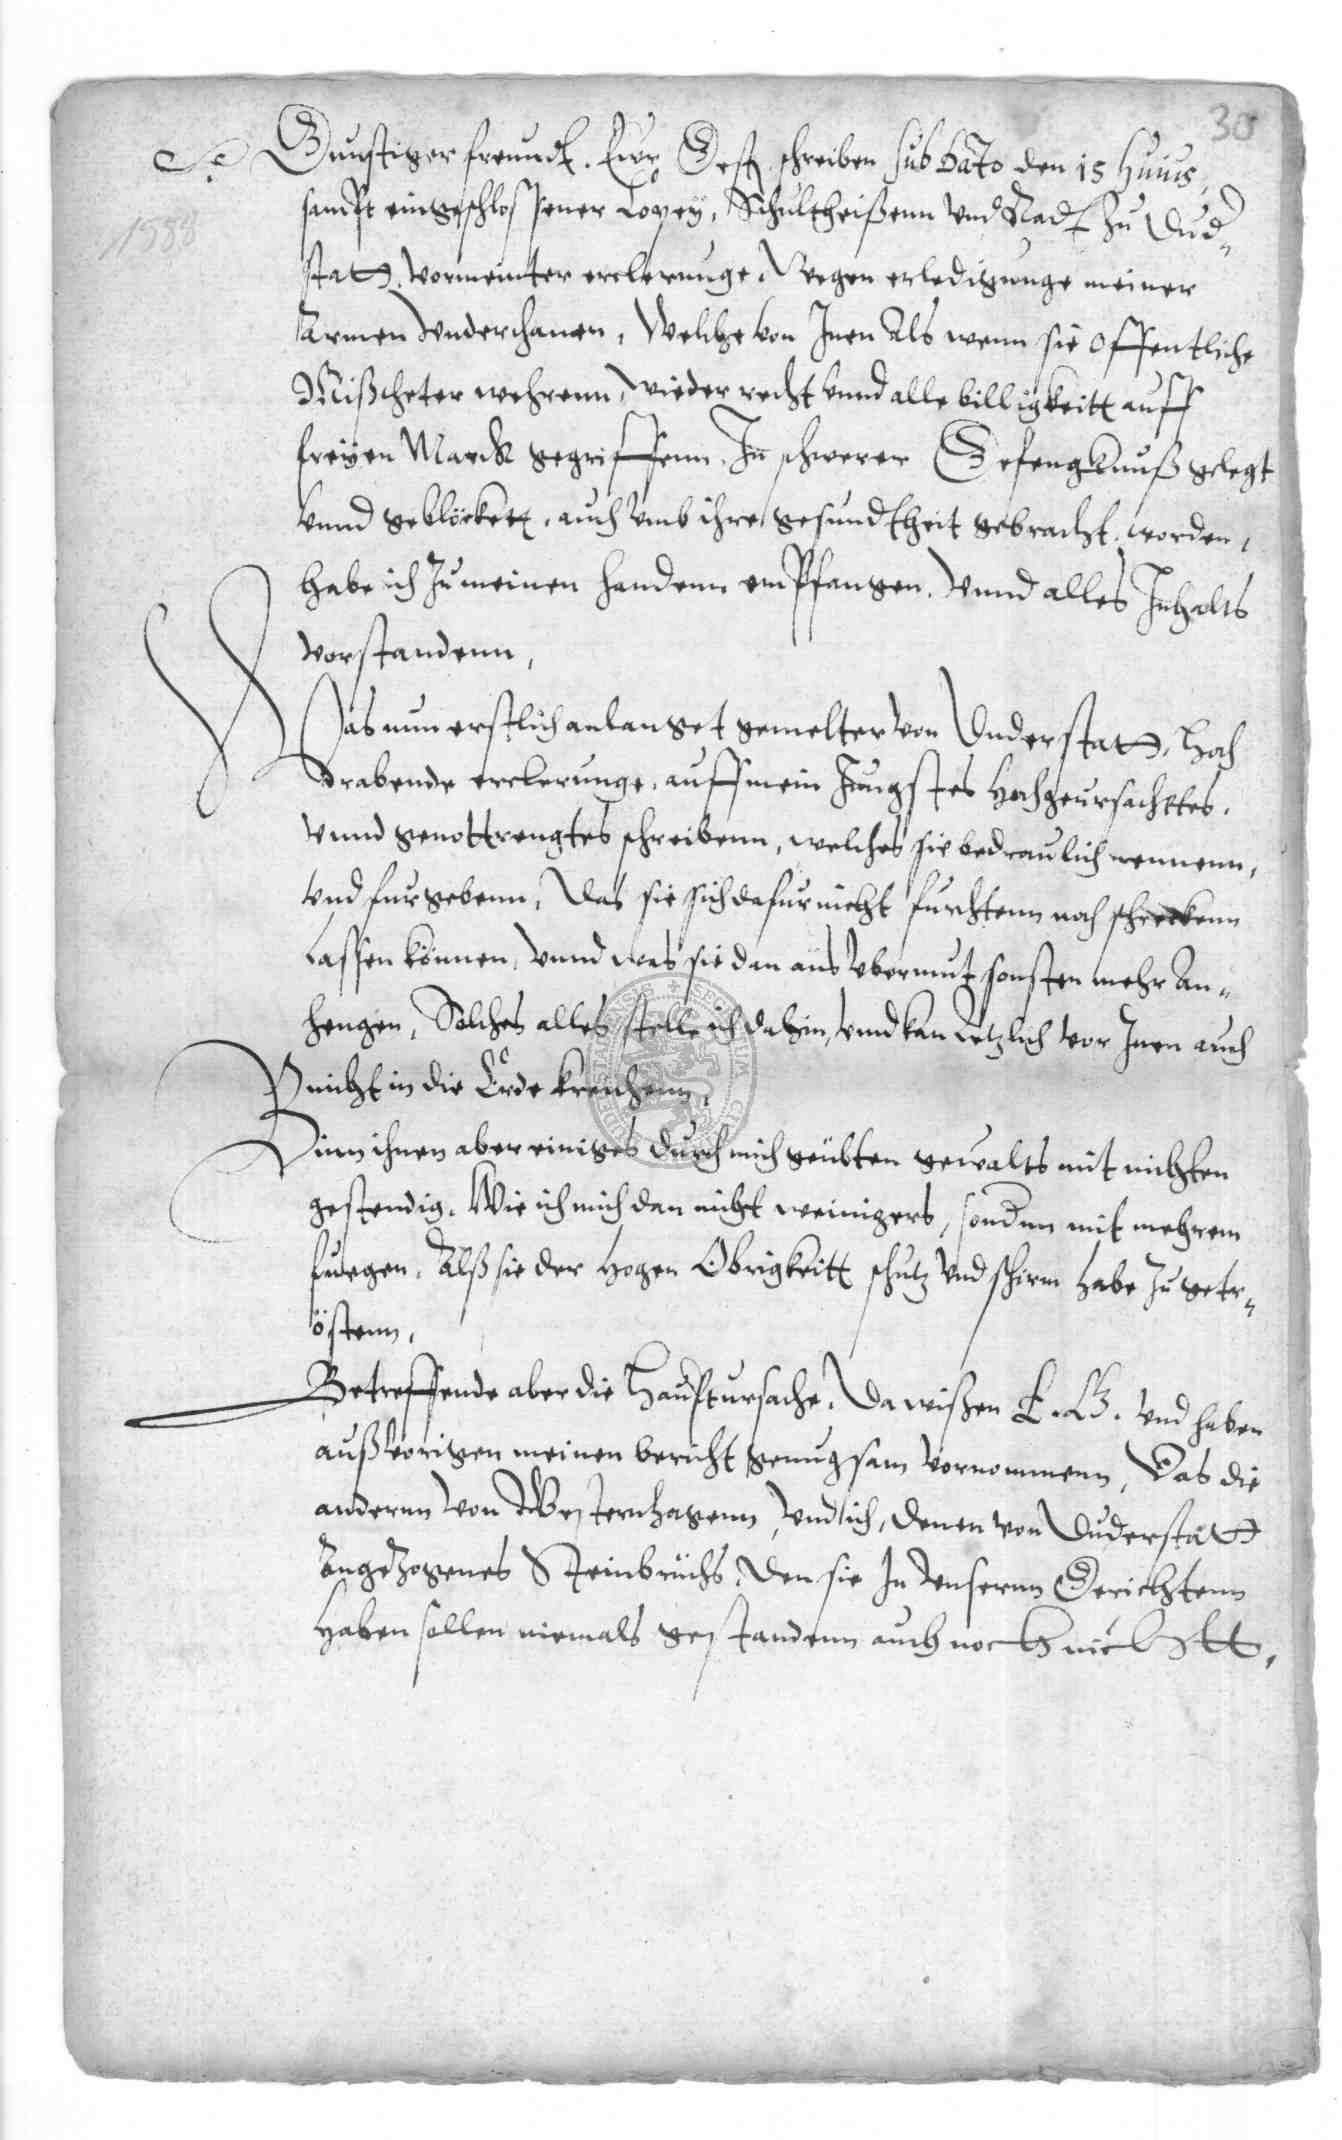 30
Gunstiger freundt. Ewr Gest. schreiben sub dato den 15 huius,
1558
sampt eingeschlossener Copey, Schultheißenn vnd Radt zu Dud„
statt, vormeinter erclerunge, Wegen erledigunge meiner
Armen Vnderthanen, Welche von Inen Als wenn sie offentliche
Mißtheter wehrenn, wieder recht vnnd alle billigkeitt auff
freyen Marck gegriffenn, In schwerer Gefengknuß gelegt
vnnd geblöcket, auch vmb ihre gesundtheit gebracht worden,
habe ich zu meinen handenn empfangen, Vnnd alles Inhalts
vorstandenn,
Was nun erstlich anlanget gemelter von Duderstatt, hoch
drabende erclerunge, auff mein Jungstes hochgeursachttes,
vnnd genottrengtes schreibenn, welches sie bedraulich nennenn,
vnd furgebenn, Das sie sich dafur nicht furchtenn noch schreckenn
Lassen können, vnnd was sie dan aus vbermut sonsten mehr An„
hengen, Solches alles stelle ich dahin, vnnd kan Letzlich vor Inen auch
nicht in die Erde kriechenn,
Binn ihnen aber einiges durch mich geübten gewalts mit nichten
gestendig, Wie ich mich dan nicht weinigers, sondern mit mehrem
fuegen, Alß sie der hogen Obrigkeitt schutz vnd schirm habe zu getr„
östenn,
Betreffende aber die Hauptursache, Da wißen E. W. vnd haben
auß vorigen meinen bericht genugsam vornommenn, Das die
anderen von Westernhagenn, vnd ich, denen von Duderstatt
Angezogenes Steinbruchs, den sie In vnsernn Gerichtenn
haben sollen niemals gestandenn auch noch nichtt,